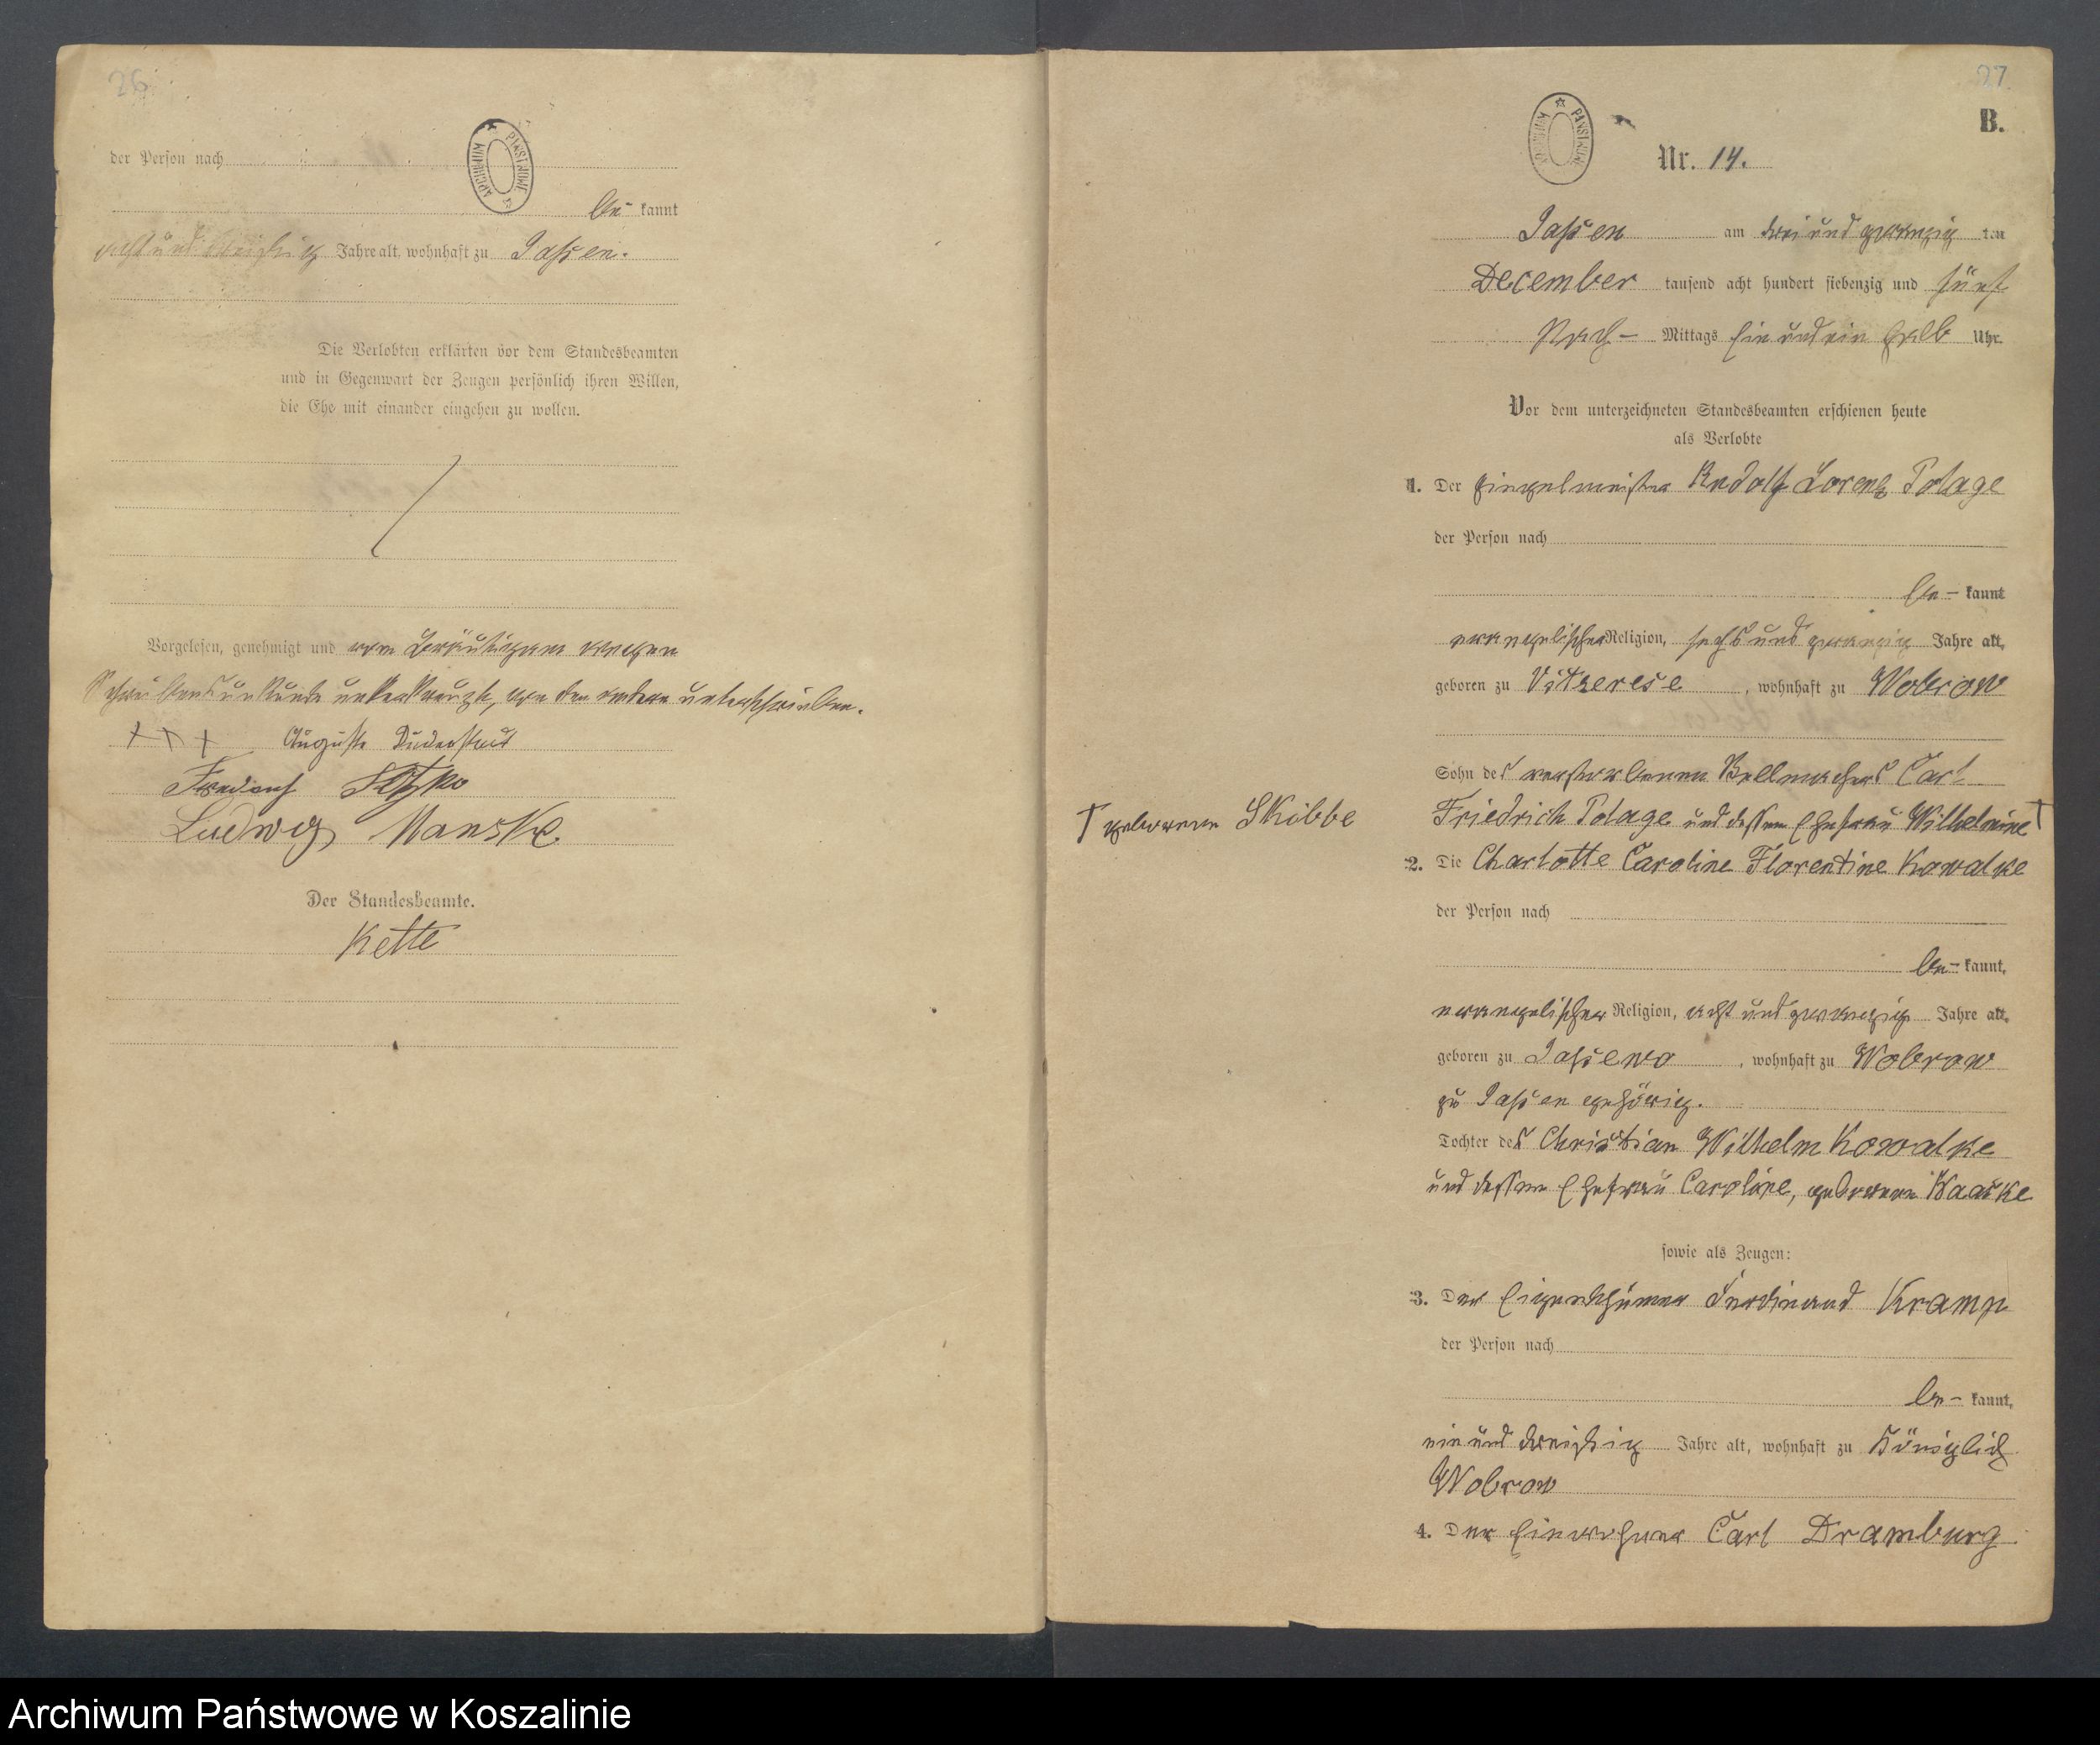 26
der Person nach
be- kannt
acht und dreißig Jahre alt, wohnhaft zu Jassen.
Die Verlobten erklärten vor dem Standesbeamten
und in Gegenwart der Zeugen persönlich ihren Willen,
die Ehe mit einander eingehen zu wollen.
Vorgelesen, genehmigt und vom Bräutigam wegen
unterkreuzt, von den andern unterschrieben.
+ + + Auguste Duderstadt
Ludwig Manske.
Der Standesbeamte.
Kette
ARCHIWUM PAŃSTWOWE
27
B.
ARCHIWUM PAŃSTWOWE
Nr. 14.
Jassen am drei und zwanzig ten
December tausend acht hundert siebenzig und fünf
Nach- Mittags ein und ein halb Uhr.
Vor dem unterzeichneten Standesbeamten erschienen heute
als Verlobte
1. Der Ziegelmeister Rudolf Lorenz Polage
der Person nach
be- kannt
evangelischer Religion, sechs und zwanzig Jahre alt,
geboren zu Vitzerese, wohnhaft zu Wobrow
Sohn des verstorbenen Carl
Friedrich Polage und dessen Ehefrau Wilhelmine †
† geborenen Skibbe
2. Die Charlotte Caroline Florentine Kowalke
der Person nach
be- kannt,
evangelischer Religion, acht und zwanzig Jahre alt,
geboren zu Jassewo, wohnhaft zu Wobrow
zu Jassen gehörig.
Tochter des Christian Wilhelm Kowalke
und dessen Ehefrau Caroline, geborenen Kaaske
sowie als Zeugen:
3. Der Eigenthümer Ferdinand Kramp
der Person nach
be- kannt,
ein und dreißig Jahre alt, wohnhaft zu Königlich
Wobrow
4. Der Einwohner Carl Dramburg
Archiwum Państwowe w Koszalinie